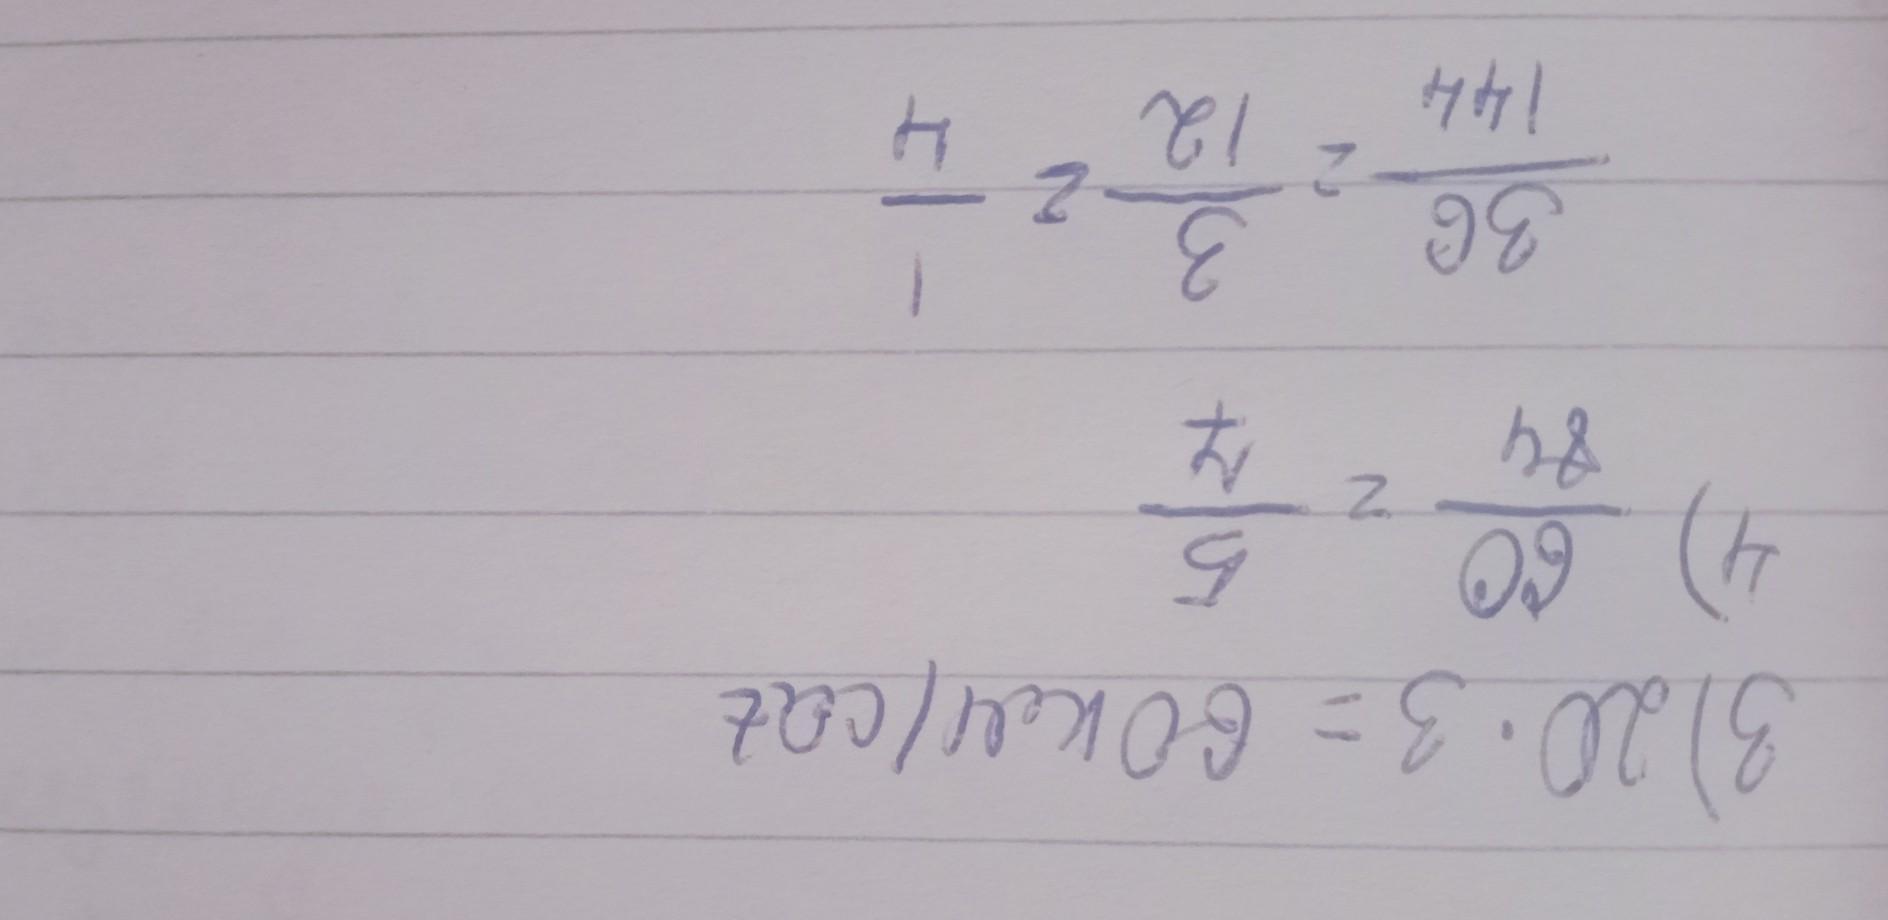 3) 20 · 3 = 60 км/саг
4) 60/84 = 5/7
36/144 = 3/12 = 1/4